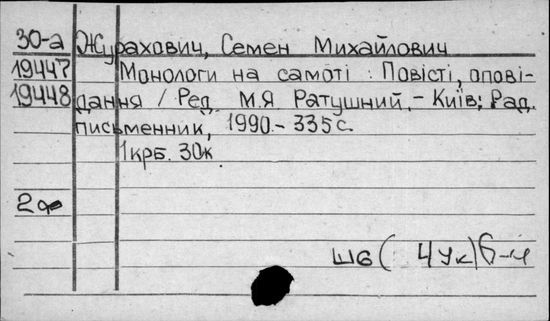 30-а Журахович, Семен Михайлович
19447 Монологи на самоті : Повісті, опові-
19448 дання / Ред. М.Я Ратушний. - Київ; Рад.
письменник, 1990.- 335 с.
1крб. 30к.
2
Ш6 ( 4Ук)6-4